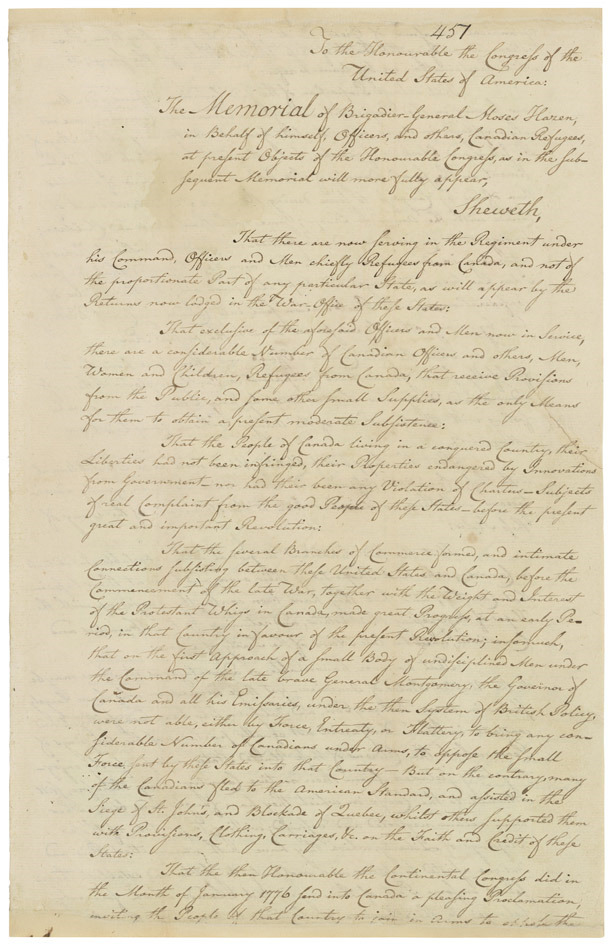 457
To the Honourable the Congress of the
United States of America:
The Memorial of Brigadier-General Moses Hazen,
in Behalf of himself, Officers, and others, Canadian Refugees,
at present Objects of the Honourable Congress, as in the sub-
sequent Memorial will more fully appear,
Sheweth,
That there are now serving in the Regiment under
his Command, Officers and Men chiefly Refugees from Canada, and not of
the proportionate Part of any particular State, as will appear by the
Returns now lodged in the War-Office of these States:
That exclusive of the aforesaid Officers and Men now in Service,
there are a considerable Number of Canadian Officers and others, Men,
Women and Children, Refugees from Canada, that receive Provisions
from the Public, and some other small Supplies, as the only Means
for them to obtain a present moderate Subsistence:
That the People of Canada living in a conquered Country, their
Liberties had not been infringed, their Properties endangered by Innovations
from Government nor had their been any Violation of Charters—Subjects
of real Complaint from the good People of these States—before the present
great and important Revolution:
That the several Branches of Commerce formed, and intimate
Connections subsisting between these United States and Canada, before the
Commencement of the late War, together with the Weight and Interest
of the Protestant Whigs in Canada, made great Progress, at an early Pe-
riod, in that Country in favour of the present Revolution; insomuch,
that on the first Approach of a small Body of undisciplined Men under
the Command of the late brave General Montgomery, the Governor of
Canada and all his Emissaries, under the then System of British Policy,
were not able, either by Force, Entreaty, or Flattery, to bring any con-
siderable Number of Canadians under Arms, to oppose the small
Force sent by these States into that Country — But on the contrary, many
of the Canadians fled to the American Standard, and assisted in the
Siege of St. John's, and Blockade of Quebec, whilst others supported them
with Provisions, Clothing, Carriages, &c. on the Faith and Credit of these
States:
That the then Honourable the Continental Congress did in
the Month of January 1776 send into Canada a pleasing Proclamation,
inviting the People of that Country to join in Arms to oppose the